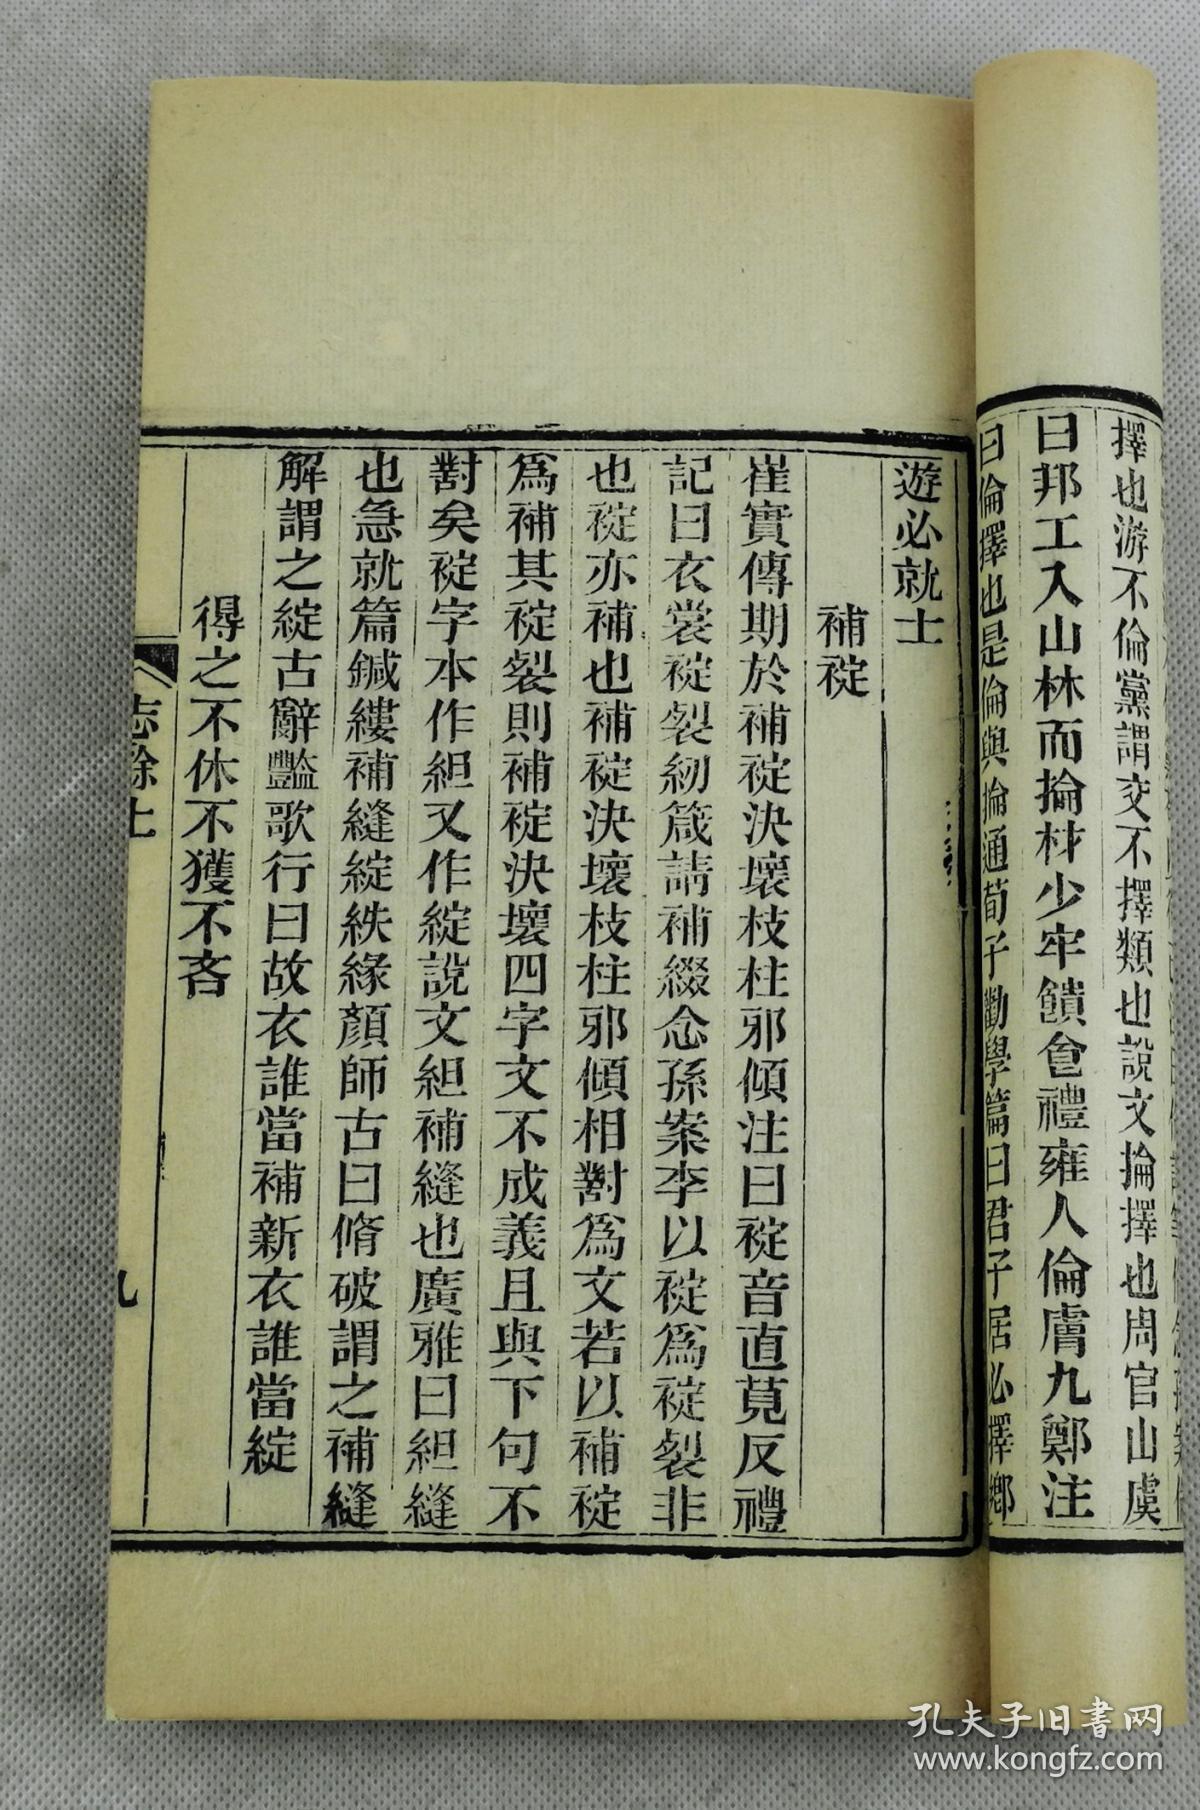 擇也游不倫黨謂交不擇類也說文掄擇也周官山虞
曰邦工入山林而掄材少牢饋食禮雍人倫膚九鄭注
曰倫擇也是倫與掄通荀子勸學篇曰君子居必擇鄉
遊必就士
補䘺
崔寔傳期於補䘺決壞枝柱邪傾注曰䘺音直莧反禮
記曰衣裳䘺裂紉箴請補綴念孫案李以䘺爲䘺裂非
也䘺亦補也補䘺決壞枝柱邪傾相對爲文若以補䘺
爲補其䘺裂則補䘺決壞四字文不成義且與下句不
對矣䘺字本作組又作綻說文組補縫也廣雅曰組縫
也急就篇鍼縷補縫綻紩緣顏師古曰脩破謂之補縫
解謂之綻古辭豔歌行曰故衣誰當補新衣誰當綻
得之不休不獲不吝
志餘上
九
孔夫子旧書网
www.kongfz.com